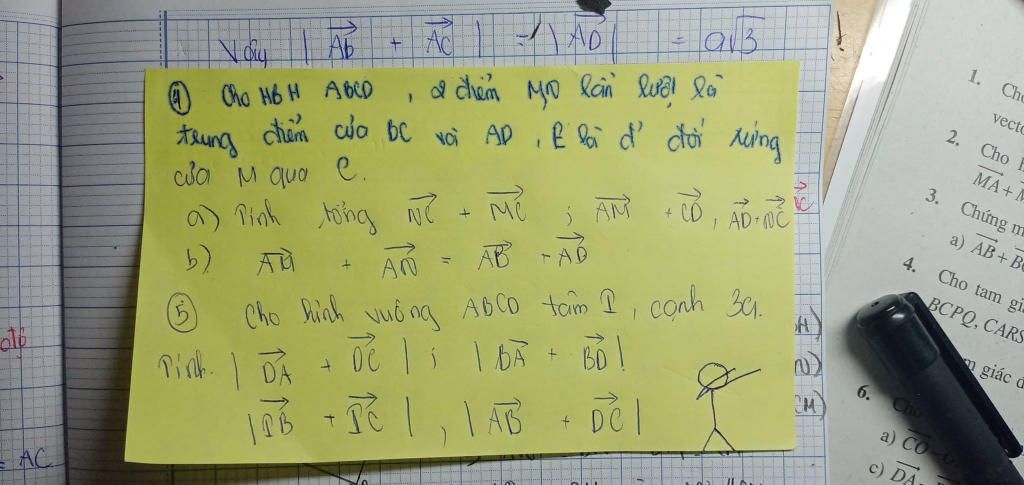 Vậy | AB + AC | = | AD | = a√3
④ Cho HBH ABCD , 2 điểm M,N lần lượt là
trung điểm của BC và AD , E là đ' đối xứng
của M qua C.
a) Tính tổng NC + MC ; AM + CD , AD + NC
b) AM + AN = AB + AD
⑤ Cho hình vuông ABCD tâm I , cạnh 3a.
Tính. | DA + DC | ; | BA + BD |
| IB + IC | , | AB + DC |
= AC
1. Ch
vect
2. Cho
MA +
3. Chứng m
a) AB + B
4. Cho tam gi
BCPQ, CARS
m giác đ
6. Cho
a) CO
c) DA